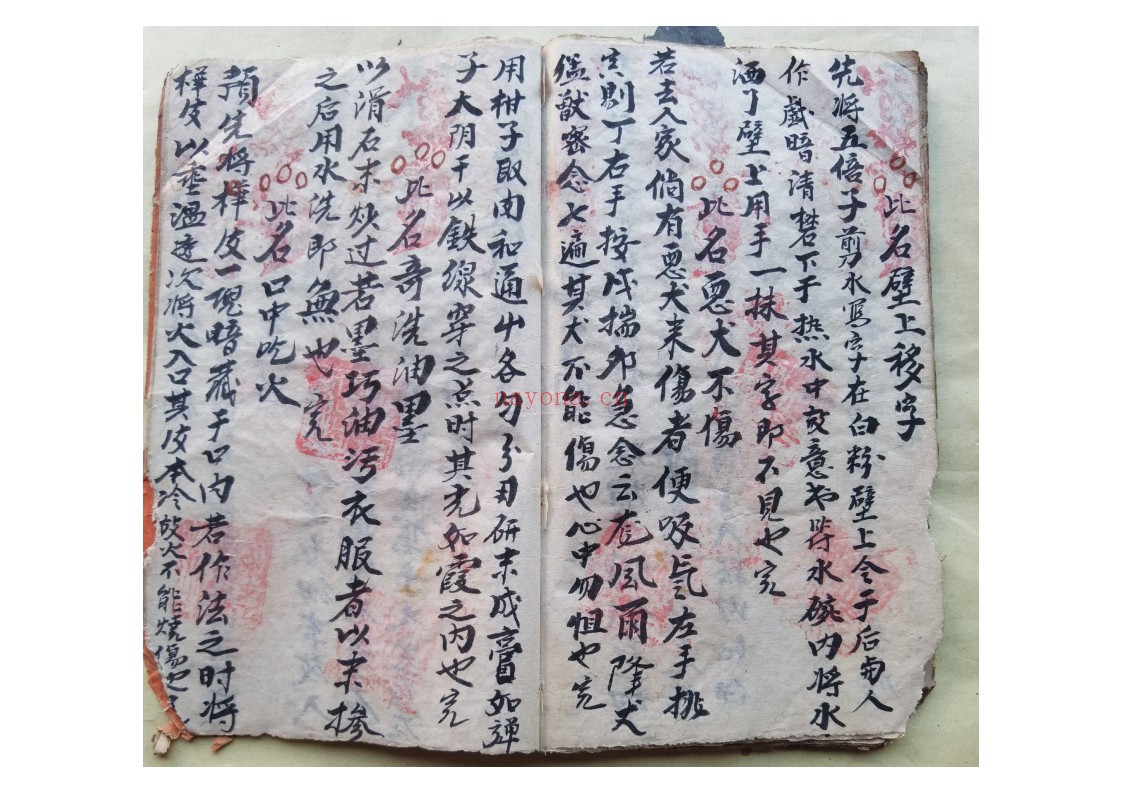 此名壁上移字
先将五倍子剪水写字在白粉壁上令干后与人
作戲暗清礬下于热水中故意出将水碗内将水
洒了壁上用手一抹其字即不見也完
此名惡犬不傷
若去人家倘有惡犬来傷者便吸氣左手挑
寅剔丁右手按戌揣卯急念云龙風雨降犬
猛獣密念七遍其犬不能傷也心中勿怛也完
用柑子取肉和通山各勺分丑研末成膏如弹
子大阴干以鉄線穿之点时其光如霞之内也完
此名奇洗油墨
以滑石末炒过若墨巧油污衣服者以末掺
之后用水洗即無也完
此名口中吃火
預先将樺皮一塊暗藏于口内若作法之时将
樺皮以唾温透次将火入口其皮本冷故火不能燒傷也完
nayona.cn